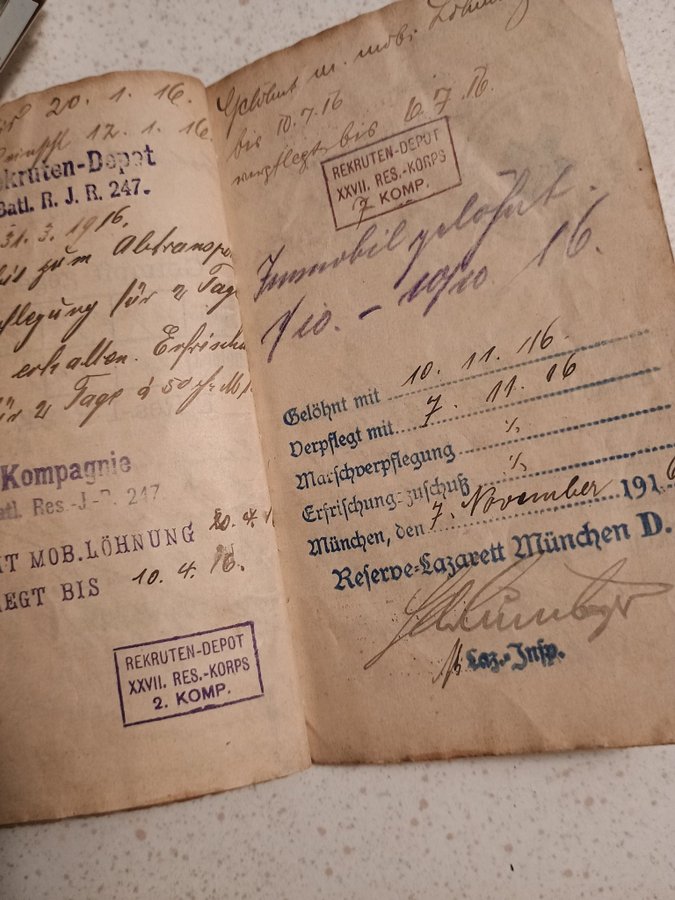 20. 1. 16.
12. 1. 16.
kruten-Depot
Batl. R. J. R. 247.
31. 3. 1916.
zum Abtransport
flegung für 2 Tage
erhalten. Erfrisch
für 2 Tage á 50
Kompagnie
atl. Res.-J-R. 247
IT MOB.LÖHNUNG 20. 4. 1
EGT BIS 10. 4. 16.
REKRUTEN-DEPOT
XXVII. RES.-KORPS
2. KOMP.
Gelöhnt m. mob. Löhnung
bis 10. 7. 16
verpflegt bis 6. 7. 16.
REKRUTEN-DEPOT
XXVII. RES.-KORPS
7 KOMP.
Immobil gelöhnt.
1/10. - 10/10 16.
Gelöhnt mit 10. 11. 16.
Verpflegt mit 7. 11. 16
Marschverpflegung ./.
Erfrischung-zuschuß ./.
München, den 7. November 1916
Reserve-Lazarett München D.
Laz.-Insp.